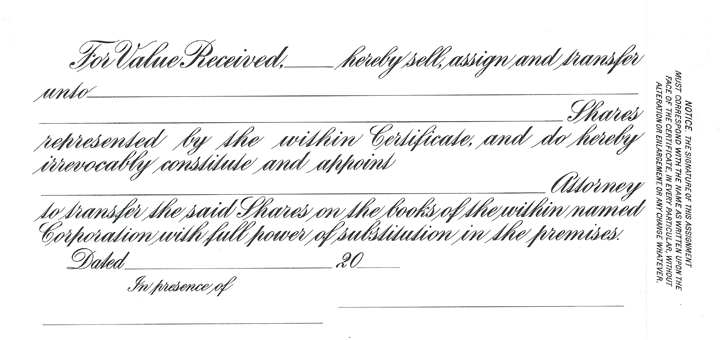 For Value Received, ____ hereby sell, assign and transfer
unto
Shares
represented by the within Certificate, and do hereby
irrevocably constitute and appoint
Attorney
to transfer the said Shares on the books of the within named
Corporation with full power of substitution in the premises.
Dated ____ 20 ____
In presence of
NOTICE. THE SIGNATURE OF THIS ASSIGNMENT
MUST CORRESPOND WITH THE NAME AS WRITTEN UPON THE
FACE OF THE CERTIFICATE, IN EVERY PARTICULAR, WITHOUT
ALTERATION OR ENLARGEMENT OR ANY CHANGE WHATEVER.